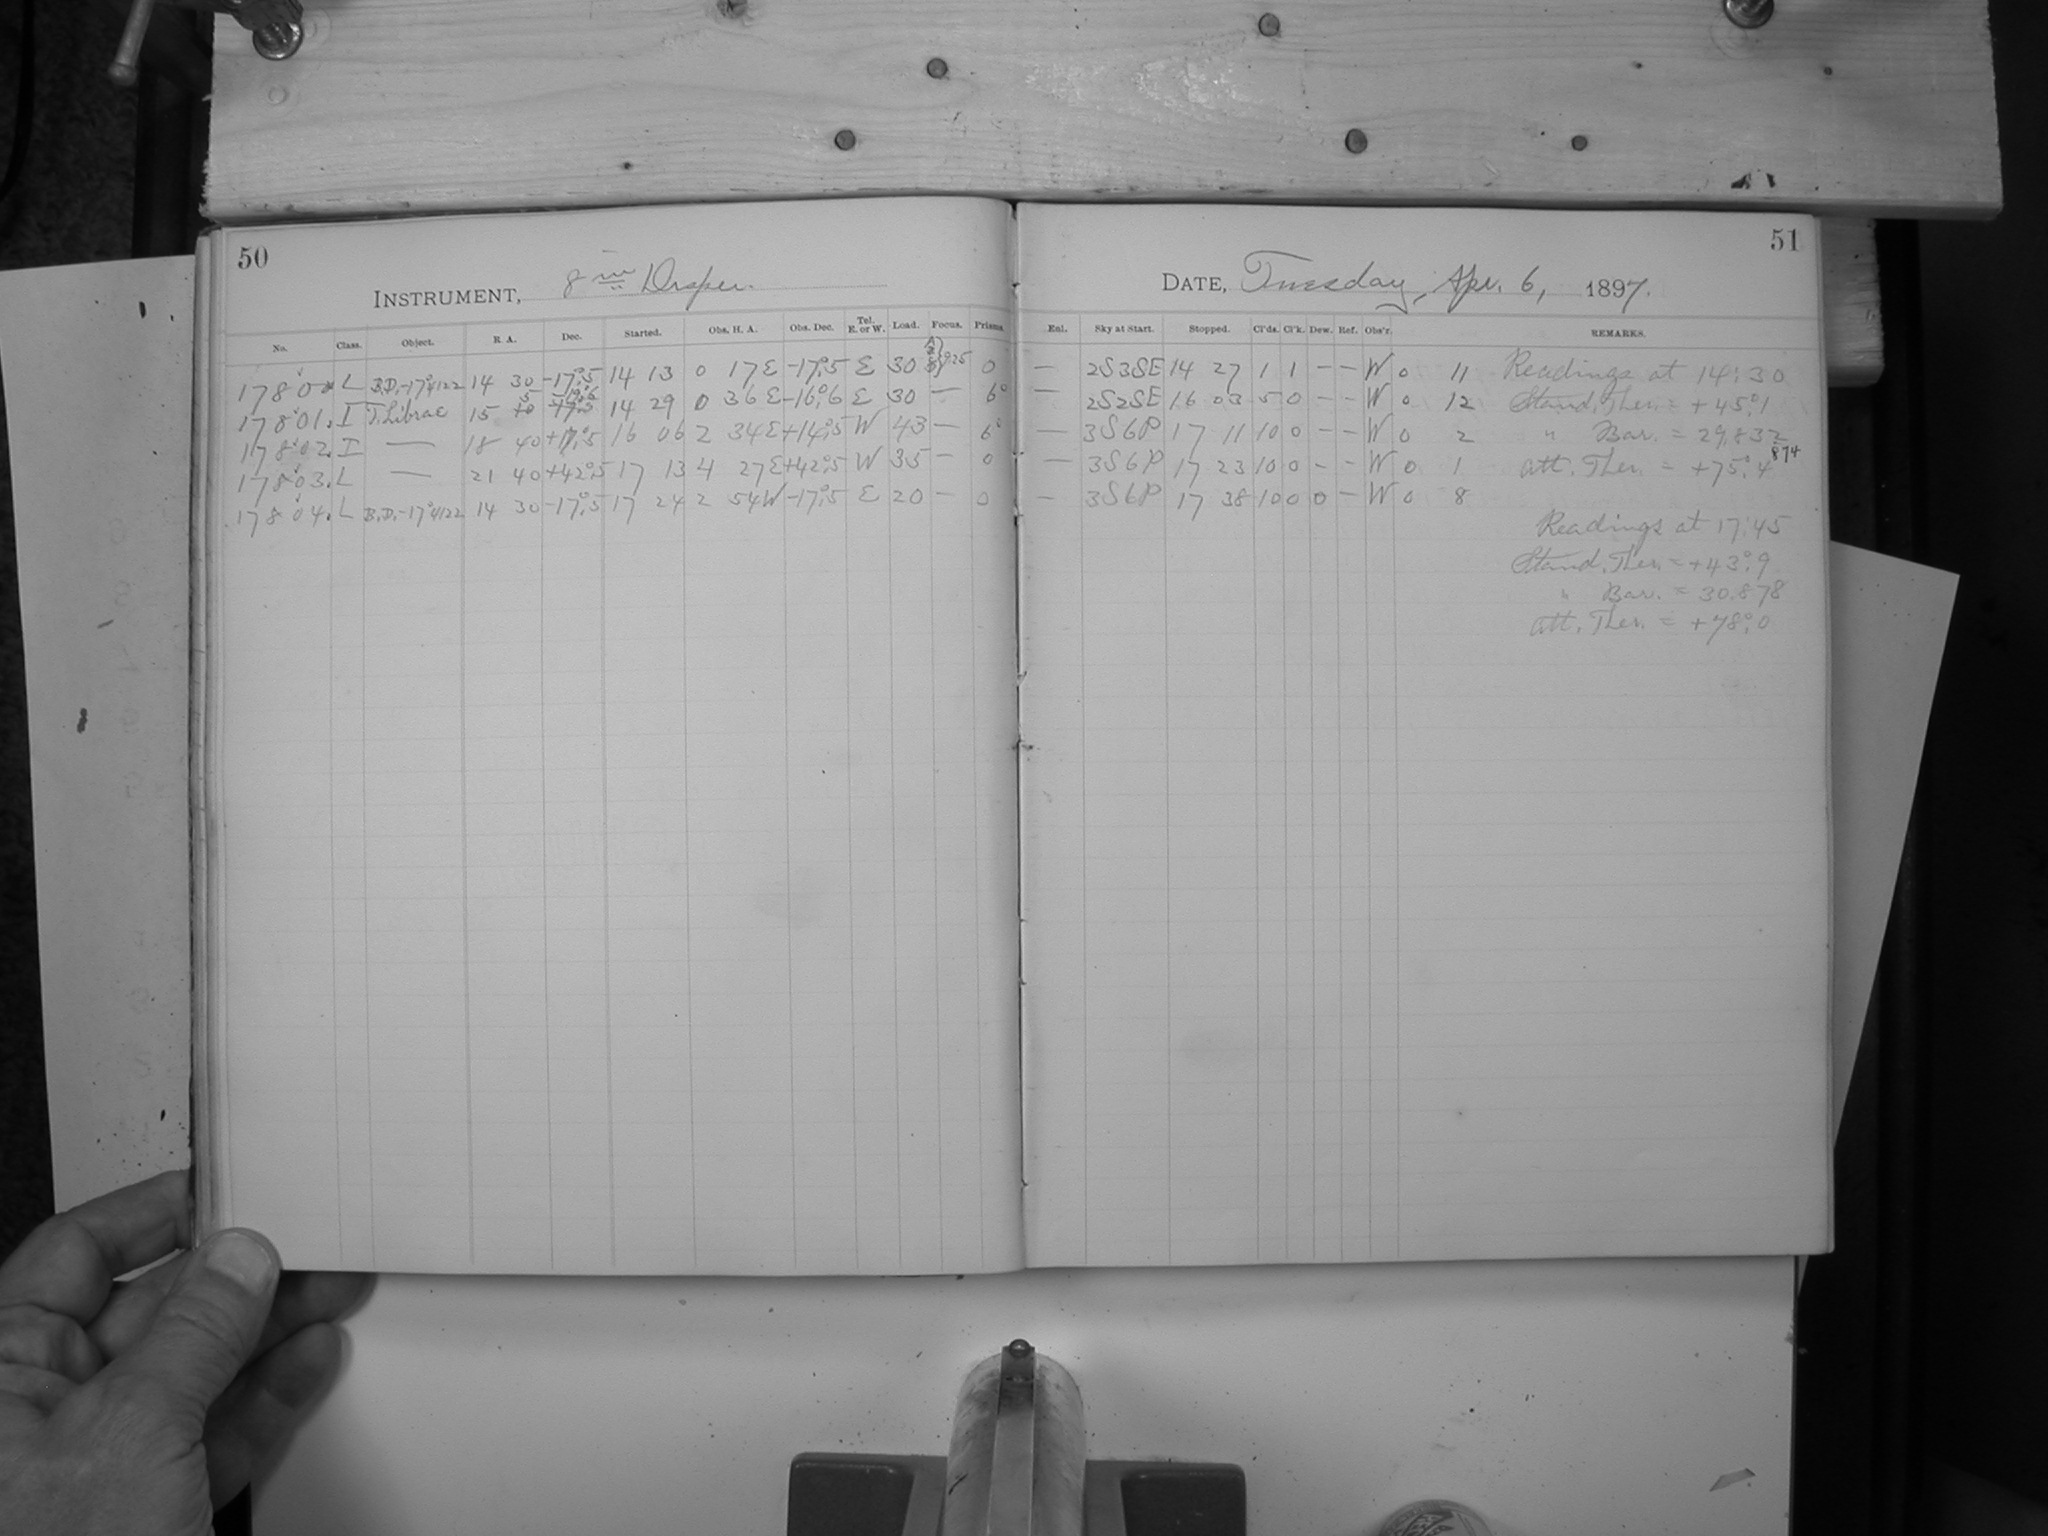 50
INSTRUMENT, 8 in Draper.
No. Class. Object. R. A. Dec. Started. Obs. H. A. Obs. Dec. Tel. E. or W. Load. Focus. Prisms.
17800 L B.D.-17°4122 14 30 -17°.5 14 13 0 17 E -17°.5 E 30 925 0
17801. I T. Librae 15 5 14 29 0 36 E -16°.6 E 30 — 6°
17802. I — 18 40 +17°.5 16 06 2 34 E +14°.5 W 43 — 6°
17803. L — 21 40 +42°.5 17 13 4 27 E +42°.5 W 35 — 0
17804. L B.D.-17°4122 14 30 -17°.5 17 24 2 54 W -17°.5 E 20 — 0
51
DATE, Tuesday, Apr. 6, 1897.
Enl. Sky at Start. Stopped. Cl'ds. Cl'k. Dew. Ref. Obs'r. REMARKS.
— 2S3SE 14 27 1 1 – – W 0 11 Readings at 14:30
— 2S2SE 16 03 5 0 – – W 0 12 Stand. Ther. = +45°.1
— 3S6P 17 11 10 0 – – W 0 2 " Bar. = 29.832
874
— 3S6P 17 23 10 0 – – W 0 1 Att. Ther. = +75°.4
— 3S6P 17 38 10 0 0 – W 0 8
Readings at 17:45
Stand. Ther. = +43°.9
" Bar. = 30.878
Att. Ther. = +78°.0